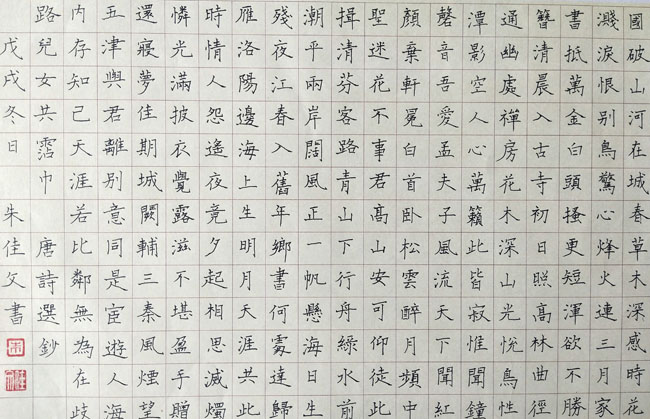 國破山河在城春草木深感時花
濺淚恨別鳥驚心烽火連三月家
書抵萬金白頭搔更短渾欲不勝
簪清晨入古寺初日照高林曲徑
通幽處禪房花木深山光悅鳥性
潭影空人心萬籟此皆寂惟聞鐘
磬音吾愛孟夫子風流天下聞紅
顏棄軒冕白首臥松雲醉月頻中
聖迷花不事君高山安可仰徒此
揖清芬客路青山下行舟綠水前
潮平兩岸闊風正一帆懸海日生
殘夜江春入舊年鄉書何處達歸
雁洛陽邊海上生明月天涯共此
時情人怨遙夜竟夕起相思滅燭
憐光滿披衣覺露滋不堪盈手贈
還寢夢佳期城闕輔三秦風煙望
五津與君離別意同是宦遊人海
內存知己天涯若比鄰無為在歧
路兒女共霑巾 唐詩選鈔
戊戌冬日 朱佳文書